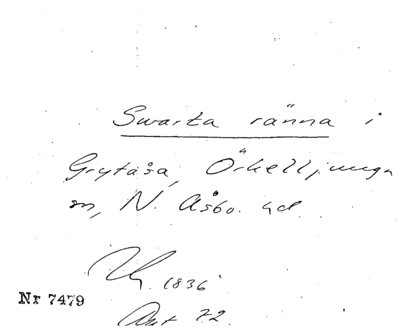 Svarta ränna i
Grytåsa, Örkelljunga
sn, N. Åsbo hd
1836
Nr 7479
Akt 72